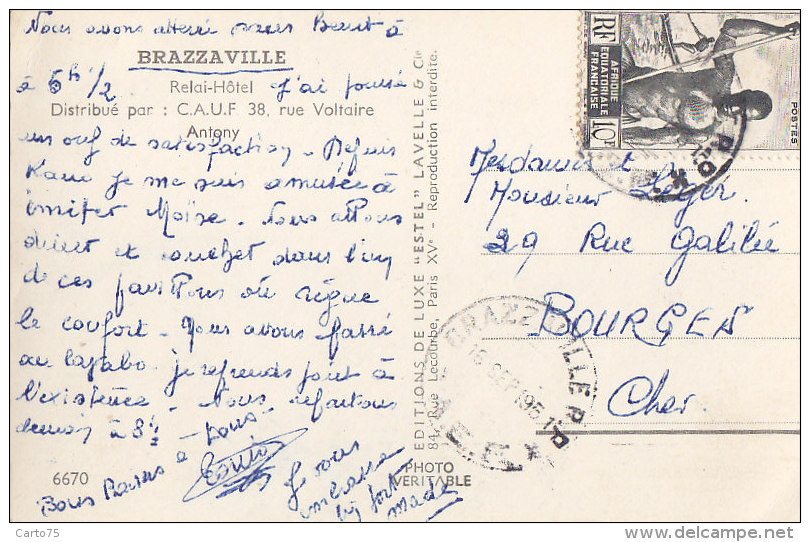 Nous avons atterri sans Benit à
BRAZZAVILLE
à 5h 1/2 Relai-Hôtel J'ai poussé
Distribué par : C.A.U.F 38, rue Voltaire
Antony
un ouf de satisfaction. Depuis
Kano je me suis amusée à
imiter Moïse. Nous allons
dîner et coucher dans l'un
de ces pavillons où règne
le confort. Nous avons passé
au lavabo. je reprends goût à
l'existence. Nous repartons
demain à 8h 1/2
Bons Baisers à tous
Je vous
embrasse
bien fort
Made
6670
PHOTO
VERITABLE
EDITIONS DE LUXE "ESTEL" LAVELLE & Cie
84, Rue Lecourbe, Paris XVe - Reproduction interdite.
RF
AFRIQUE
EQUATORIALE
FRANÇAISE
10F
POSTES
Mesdames et
Monsieur Léger.
29 Rue Galilée
BOURGES
Cher.
BRAZZAVILLE R.P.
16 SEP 1951
A.E.F
Carto75
www.delcampe.net